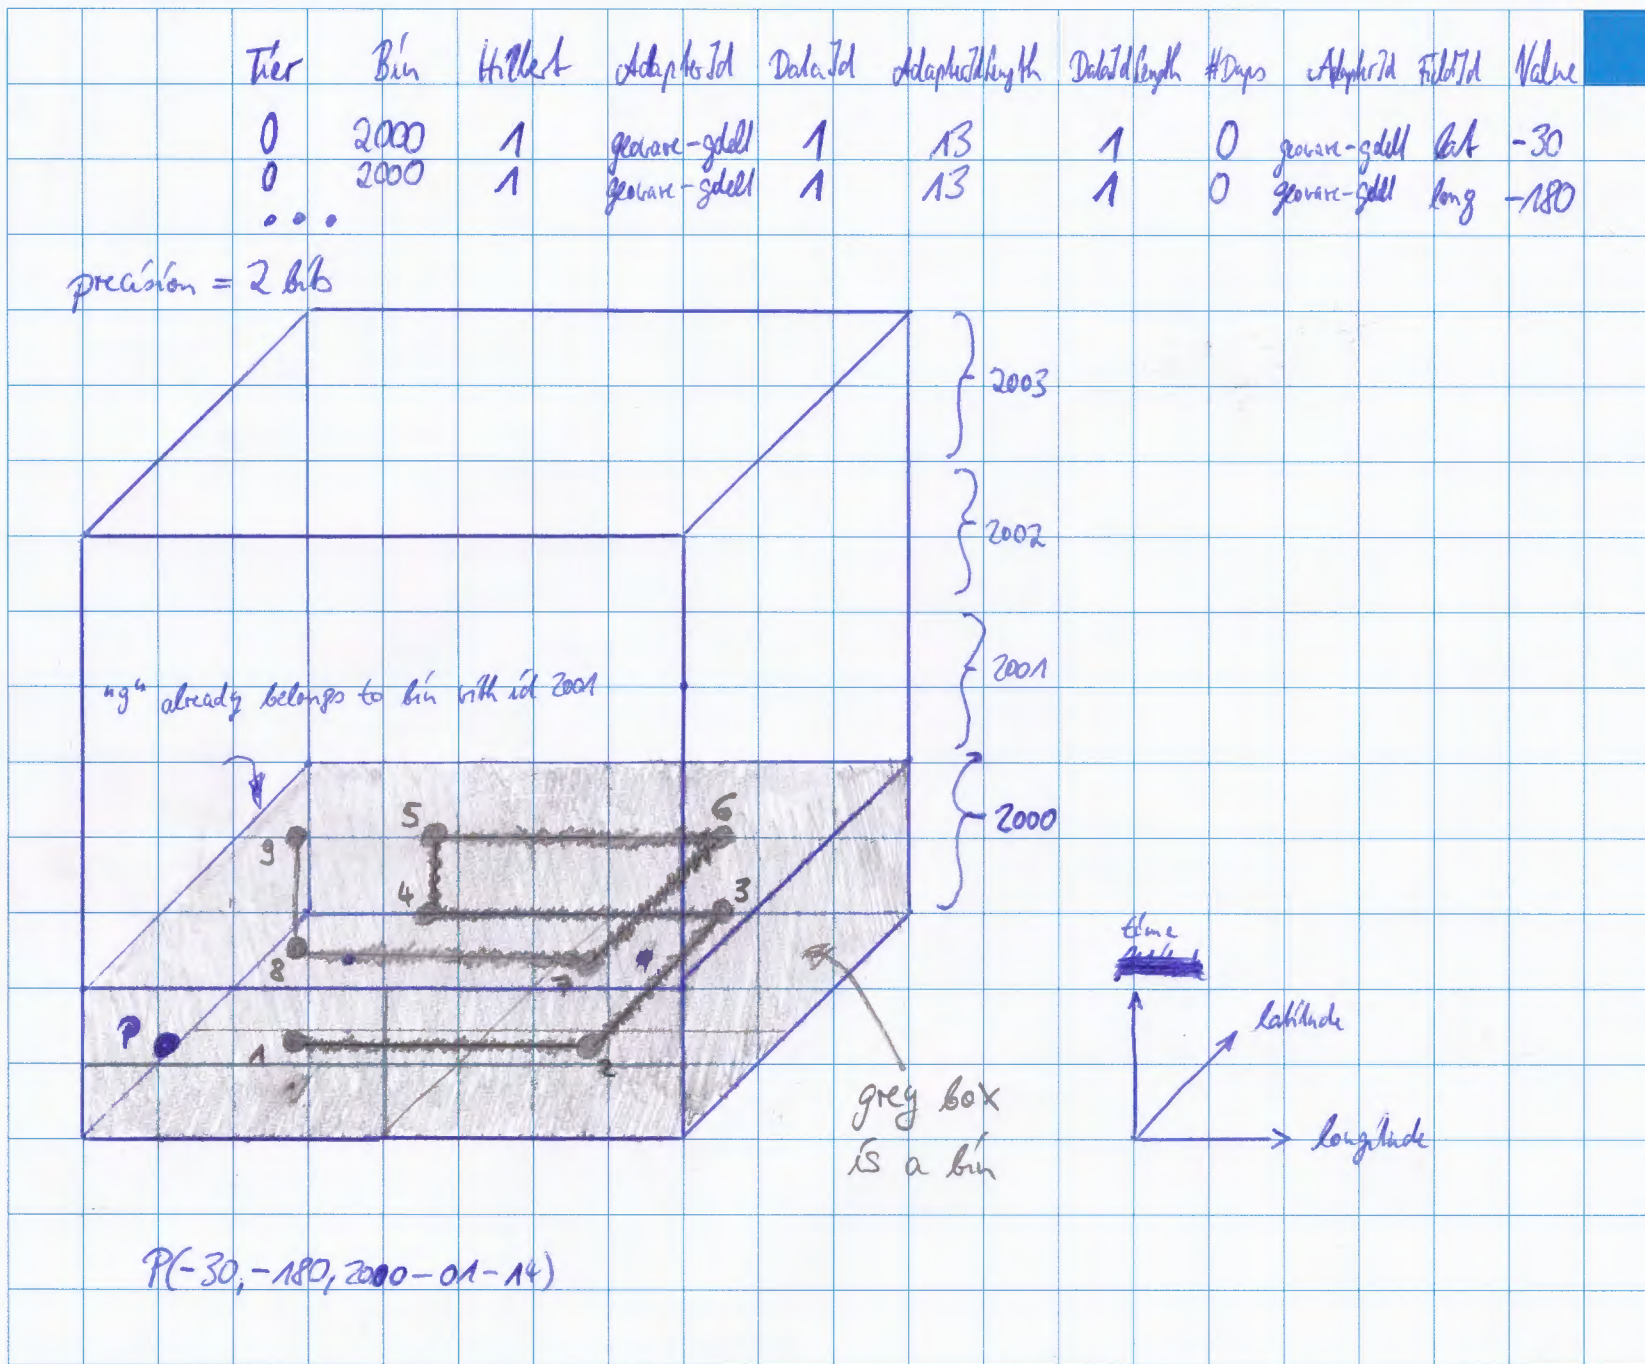 Tier Bin Hilbert AdapterId DataId AdapterIdLength DataIdLength #Dups AdapterId FieldId Value
0 2000 1 geowave-gdelt 1 13 1 0 geowave-gdelt lat -30
0 2000 1 geowave-gdelt 1 13 1 0 geowave-gdelt long -180
...
precision = 2 bits
2003
2002
2001
"9" already belongs to bin with id 2001
2000
5 6
9
4 3
8 7
P
1 2
time
latitude
longitude
grey box
is a bin
P(-30, -180, 2000-01-14)